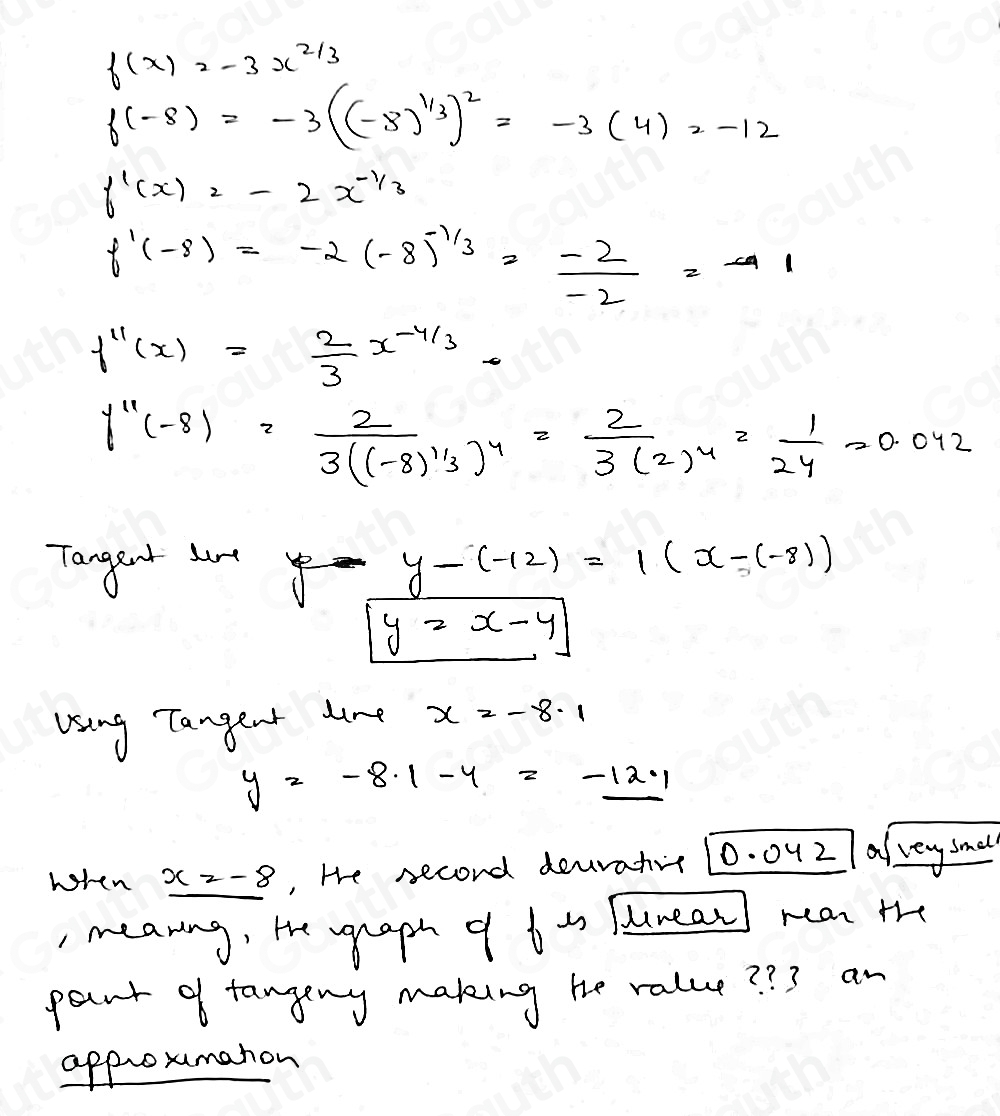 f(x) = -3x^{2/3}
f(-8) = -3((-8)^{1/3})^2 = -3(4) = -12
f'(x) = -2x^{-1/3}
f'(-8) = -2(-8)^{-1/3} = \frac{-2}{-2} = 1
f''(x) = \frac{2}{3}x^{-4/3}
f''(-8) = \frac{2}{3((-8)^{1/3})^4} = \frac{2}{3(2)^4} = \frac{1}{24} = 0.042
Tangent line y-(-12) = 1(x-(-8))
y = x-4
Using Tangent line x = -8.1
y = -8.1-4 = -12.1
When x = -8, the second derivative 0.042 very small
, meaning, the graph of f is linear near the
point of tangeny making the value ??? an
approximation
Gauth